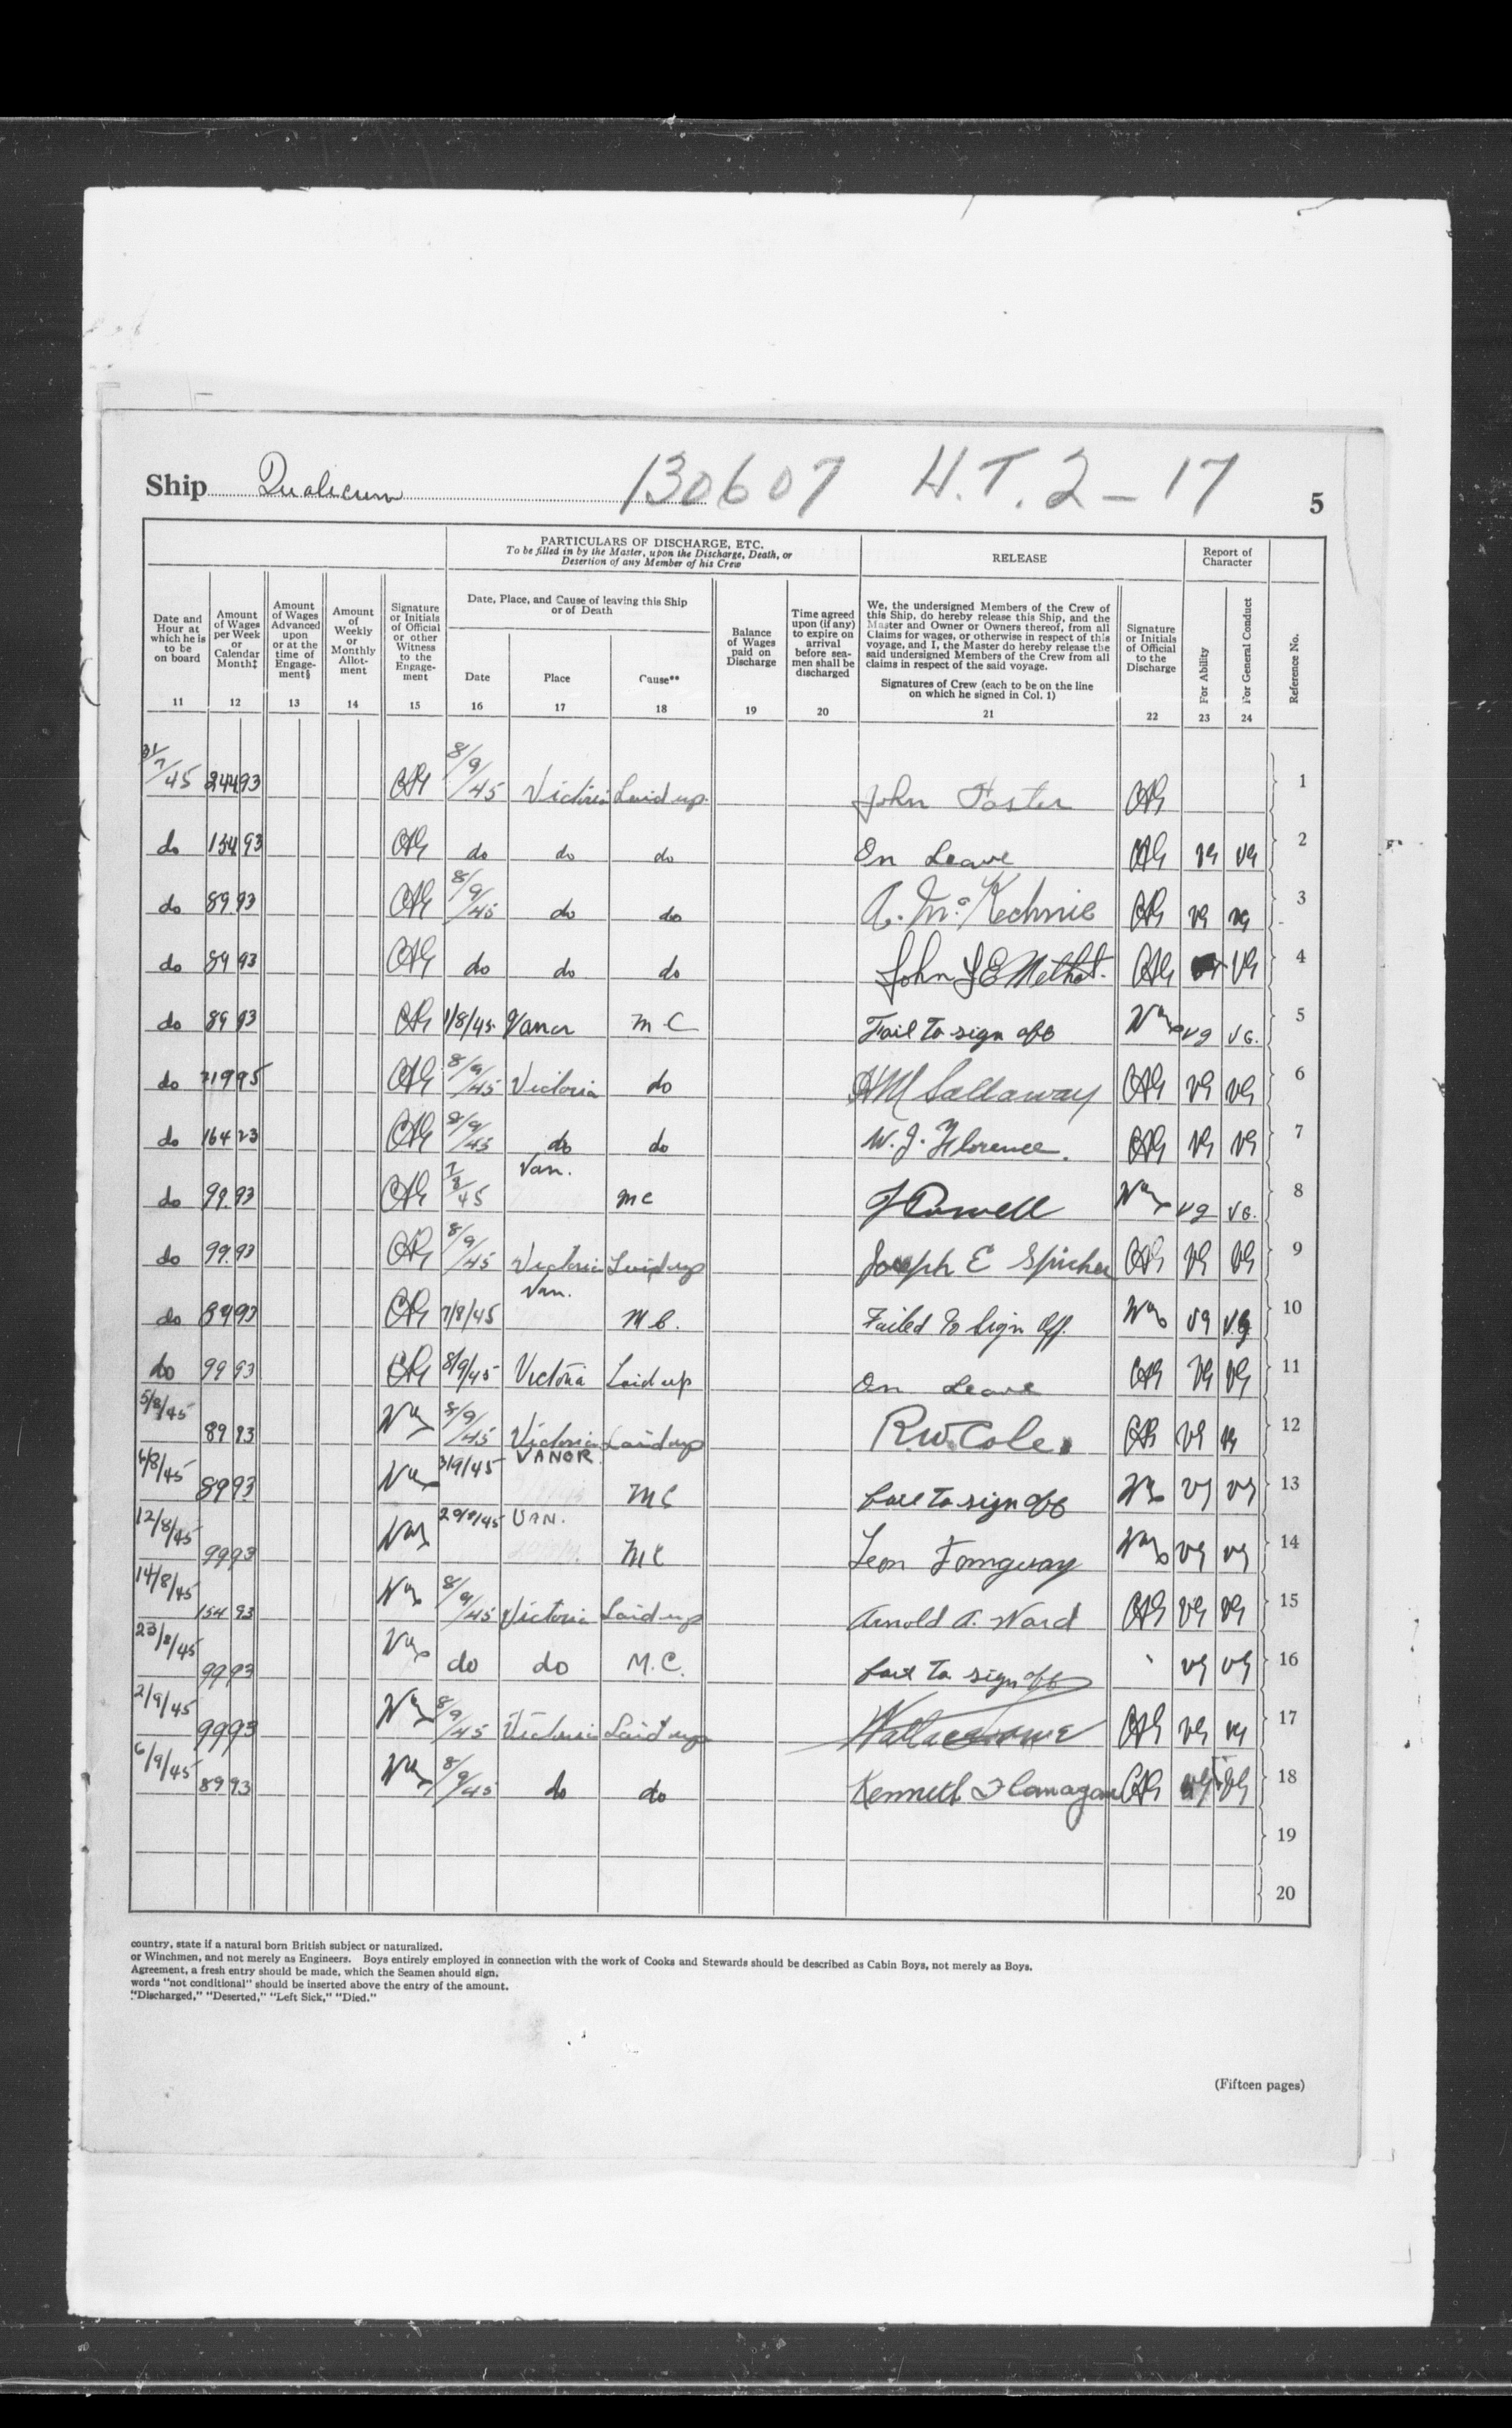 Ship Qualicum 130607 H.T. 2-17 5
PARTICULARS OF DISCHARGE, ETC.
To be filled in by the Master, upon the Discharge, Death, or
Desertion of any Member of his Crew
RELEASE
Report of
Character
Date and
Hour at
which he is
to be
on board
Amount
of Wages
per Week
or
Calendar
Month‡
Amount
of Wages
Advanced
upon
or at the
time of
Engage-
ment§
Amount
of
Weekly
or
Monthly
Allot-
ment
Signature
or Initials
of Official
or other
Witness
to the
Engage-
ment
Date, Place, and Cause of leaving this Ship
or of Death
Date
Place
Cause**
Balance
of Wages
paid on
Discharge
Time agreed
upon (if any)
to expire on
arrival
before sea-
men shall be
discharged
We, the undersigned Members of the Crew of
this Ship, do hereby release this Ship, and the
Master and Owner or Owners thereof, from all
Claims for wages, or otherwise in respect of this
voyage, and I, the Master do hereby release the
said undersigned Members of the Crew from all
claims in respect of the said voyage.
Signatures of Crew (each to be on the line
on which he signed in Col. 1)
Signature
or Initials
of Official
to the
Discharge
For Ability
For General Conduct
Reference No.
11 12 13 14 15 16 17 18 19 20 21 22 23 24
31/7/45 244 93 8/9/45 Victoria Laid up John Foster 1
do 154 93 do do do On Leave VG VG 2
do 89 93 8/9/45 do do A. McKechnie VG VG 3
do 89 93 do do do John VG 4
do 89 93 1/8/45 Vancr M C Fail to sign off vg VG. 5
do 95 8/9/45 Victoria do HM Callaway VG VG 6
do 164 23 8/9/45 do do W. J. Florence. VG VG 7
do 99.93 45 Van. MC vg VG. 8
do 99.93 8/9/45 Victoria Laid up Joseph E VG VG 9
do 89 93 7/8/45 Van. M C. Failed to Sign off. VG V.G 10
do 99 93 8/9/45 Victoria Laid up On Leave VG VG 11
5/8/45 89 93 8/9/45 Victoria Laid up R.W. Cole. VG VG 12
6/8/45 89 93 3/9/45 VANCR. MC Fail to sign off VG VG 13
12/8/45 99 93 29/8/45 VAN. MC Leon VG VG 14
14/8/45 154 93 8/9/45 Victoria Laid up Arnold A. Ward VG VG 15
23/8/45 99 93 do do M.C. Fail to sign off VG VG 16
2/9/45 99 93 8/9/45 Victoria Laid up Wallace VG VG 17
6/9/45 89 93 8/9/45 do do Kenneth Flanagan VG 18
19
20
country, state if a natural born British subject or naturalized.
or Winchmen, and not merely as Engineers. Boys entirely employed in connection with the work of Cooks and Stewards should be described as Cabin Boys, not merely as Boys.
Agreement, a fresh entry should be made, which the Seamen should sign.
words "not conditional" should be inserted above the entry of the amount.
"Discharged," "Deserted," "Left Sick," "Died."
(Fifteen pages)